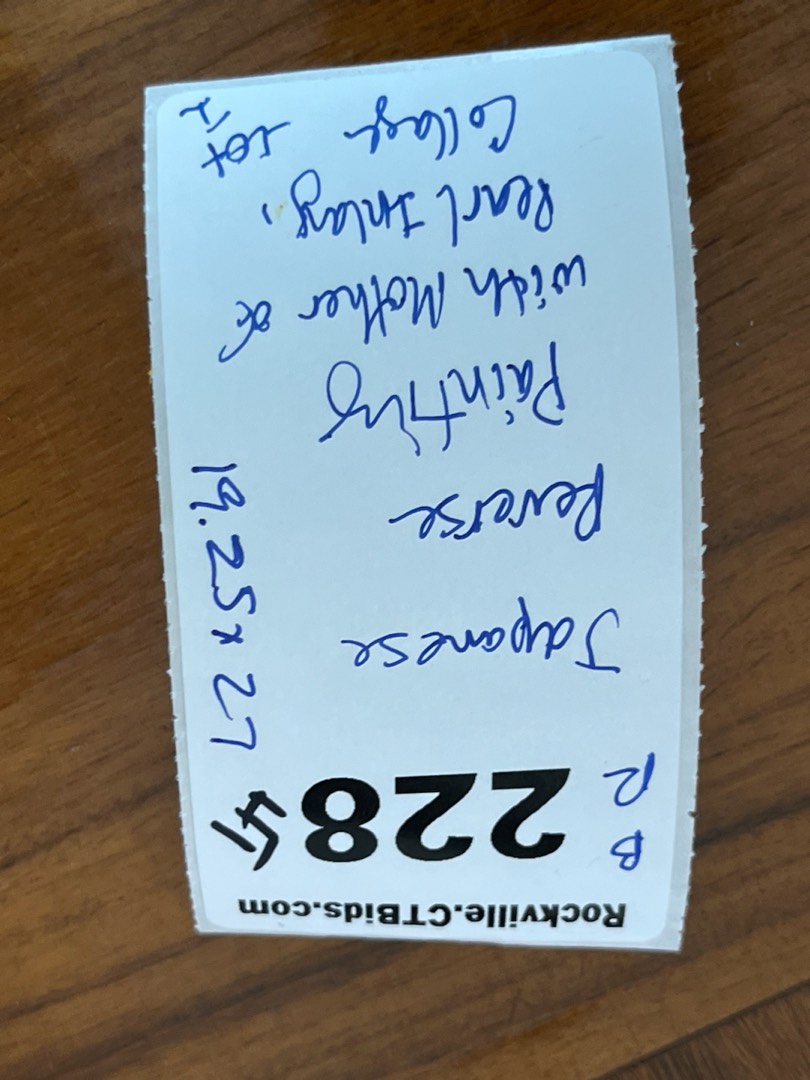 Rockville.CTBids.com
B
R
228
Japanese
Reverse
Painting
with Mother of
Pearl Inlay,
Collage Lot
19.25 x 27